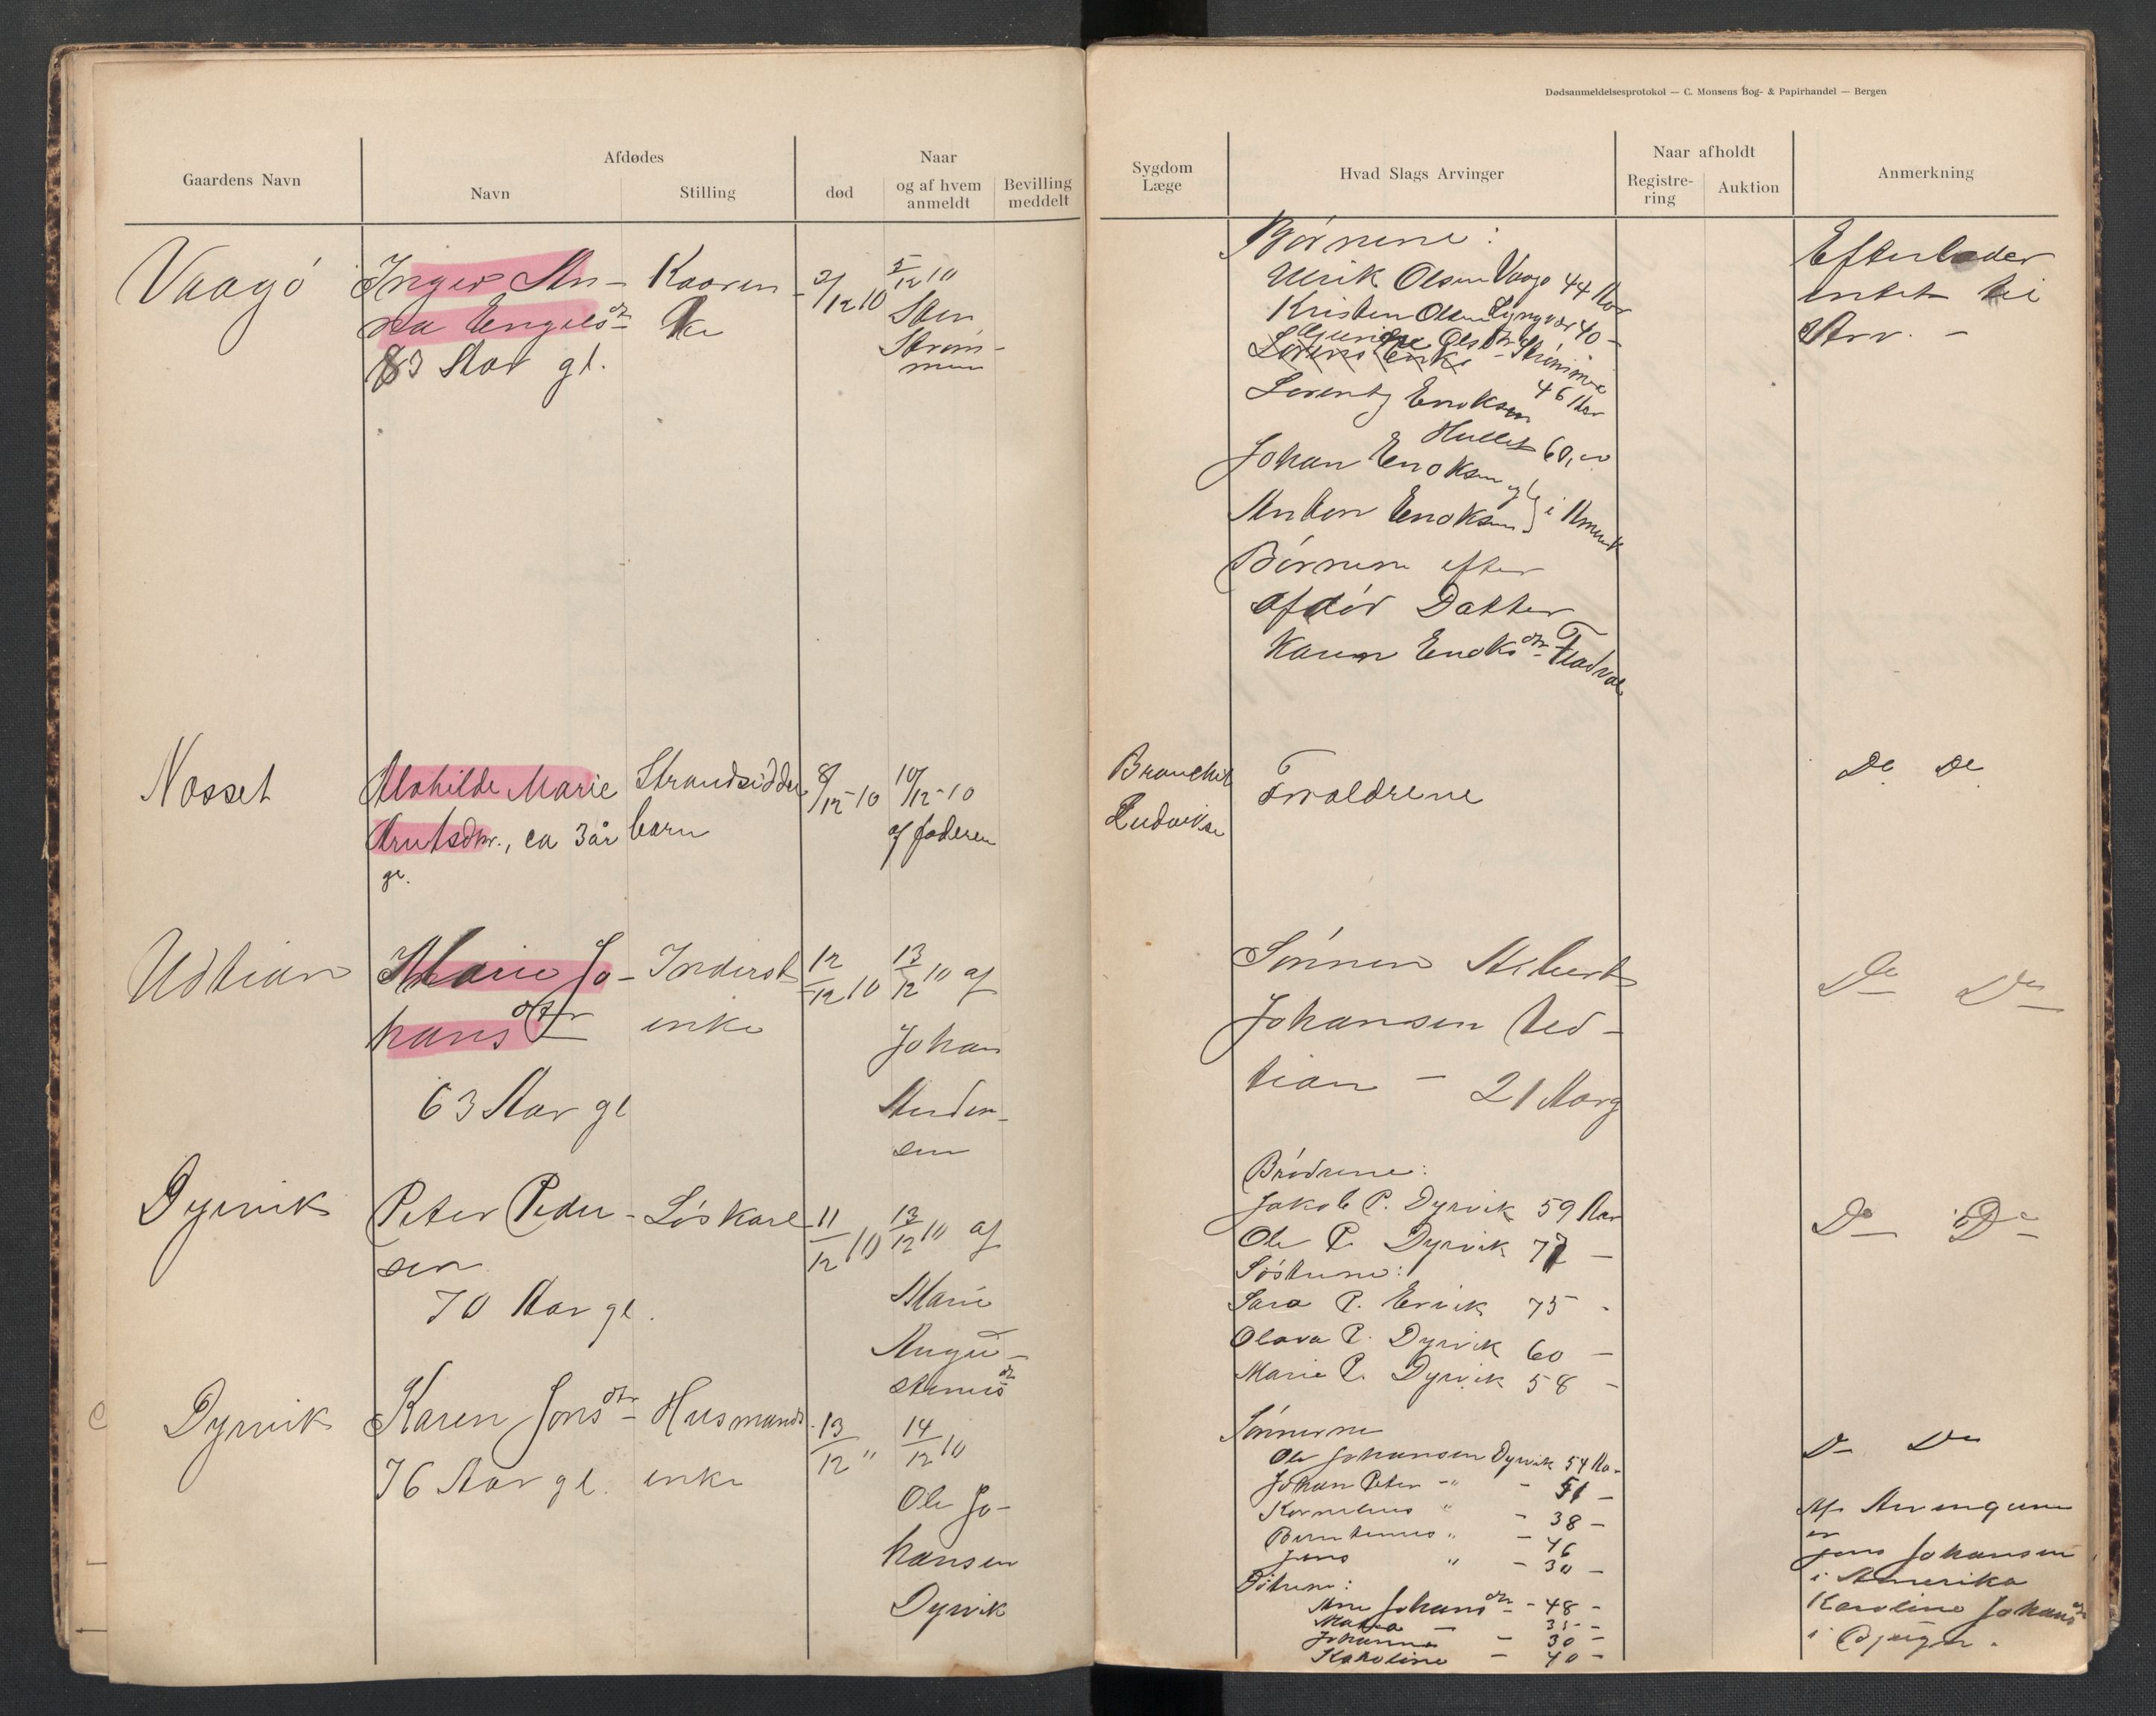 Dødsanmeldelsesprotokol — C. Monsens Bog- & Papirhandel — Bergen
Gaardens Navn
Afdødes
Navn
Stilling
Naar
død
og af hvem anmeldt
Bevilling meddelt
Sygdom
Læge
Hvad Slags Arvinger
Naar afholdt
Registrering
Auktion
Anmerkning
Vaagø
Inger An-
na Engelsdtr
83 Aar gl.
2/12 10
5/12 10
Sten
Strøm-
men
Børnene:
Ulrik Olsen Vaagø 44 Aar
Kristen Olsen Lyngvær 40 -
Olsdtr
46 Aar
Lorentz Enoksen
60
Johan Enoksen og
Anton Enoksen } i Amerik
Børnene efter
afdød Datter
Karen Enoksdtr
Efterlader
intet til
Arv. -
Nosset
Mathilde Marie
Arntsdtr., ca 3 år
gl.
Strandsidder
barn
8/12-10
10/12-10
af faderen
Bronchit
Ludviksen
Forældrene
Do Do
Udtian
Marie Jo-
hansdtr
63 Aar gl
Inderst
enke
12/12 10
13/12 10 af
Johan
Ander-
sen
Sønnen Albert
Johansen Ud-
tian - 21 Aar g
Do Do
Dyrvik
Peter Peder-
sen
70 Aar gl.
Løskarl
11/12 10
13/12 10 af
Marie
Augu-
stinusdtr
Brødrene:
Jakob P. Dyrvik 59 Aar
Ole P. Dyrvik 72 -
Søstrene:
Sara P. Ervik 75 -
Olava P. Dyrvik 60 -
Marie P. Dyrvik 58 -
Do Do
Dyrvik
Karen Jonsdtr
76 Aar gl.
Husmands-
enke
13/12 "
14/12 10
Ole Jo-
hansen
Dyrvik
Sønnerne
Ole Johansen Dyrvik 54 Aar
Johan Peter -"- - 51 -
Kornelius " - 38 -
Berntinus " - 46
Jens " - 30 -
Døtrene:
Johansdtr - 48 -
Maria -
Johanna - 30 -
Karoline - 40 -
Do Do
Af Arvingerne
er
Jens Johansen
i Amerika
Karoline Johansdtr
i Bjugn.